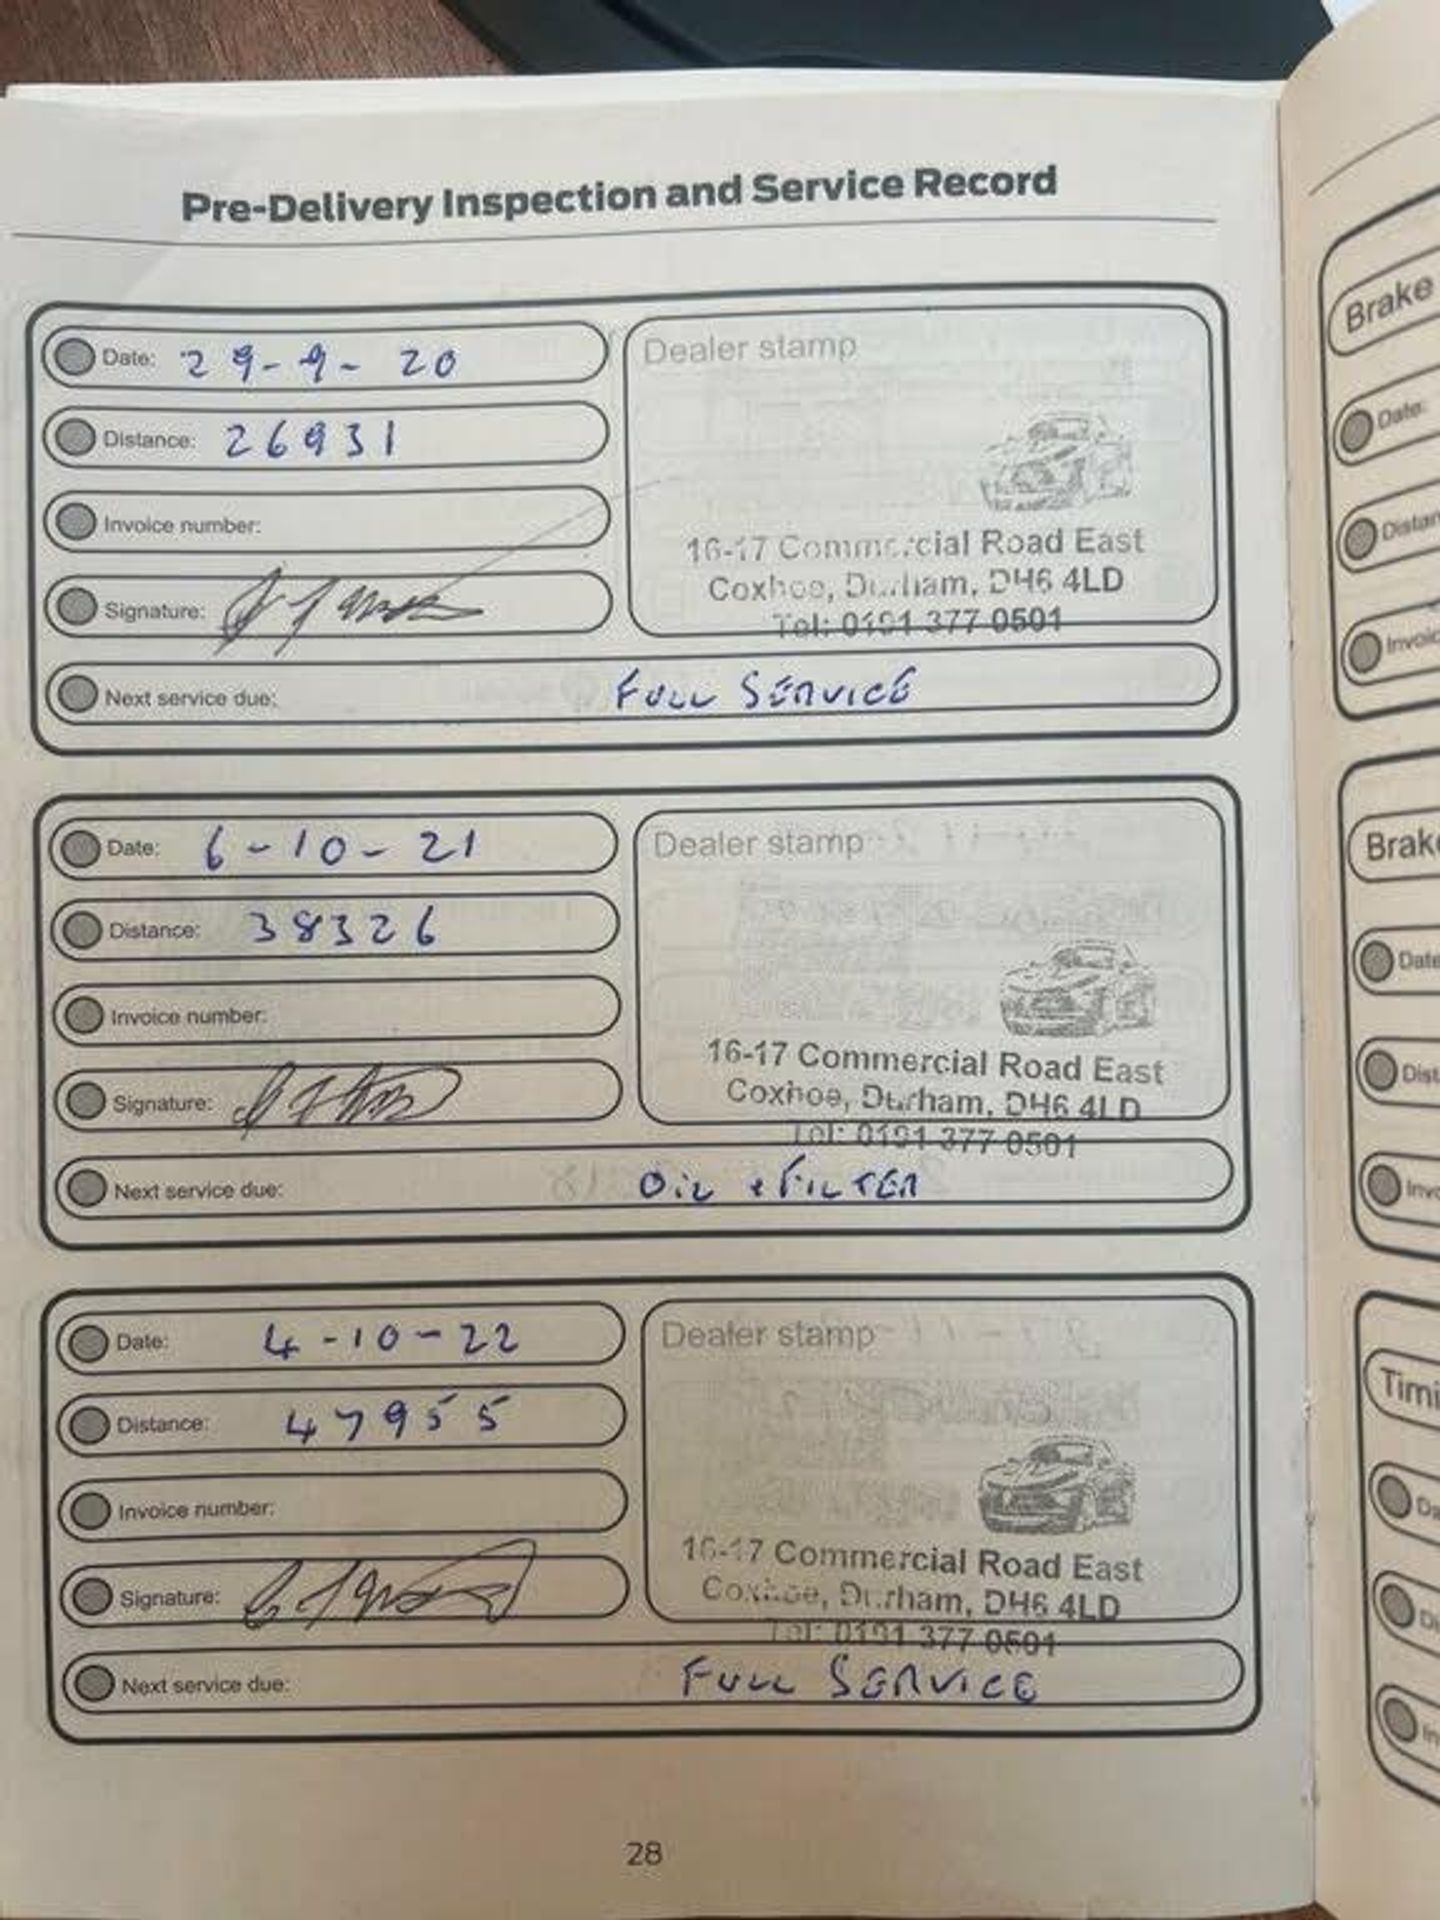 Pre-Delivery Inspection and Service Record
Date: 29-9-20
Distance: 26931
Invoice number:
Signature:
Dealer stamp
16-17 Commercial Road East
Coxhoe, Durham, DH6 4LD
Tel: 0191 377 0501
Next service due: FULL SERVICE
Date: 6-10-21
Distance: 38326
Invoice number:
Signature:
Dealer stamp
16-17 Commercial Road East
Coxhoe, Durham, DH6 4LD
Tel: 0191 377 0501
Next service due: OIL + FILTER
Date: 4-10-22
Distance: 47955
Invoice number:
Signature:
Dealer stamp
16-17 Commercial Road East
Coxhoe, Durham, DH6 4LD
Tel: 0191 377 0501
Next service due: FULL SERVICE
28
Brake
Date: